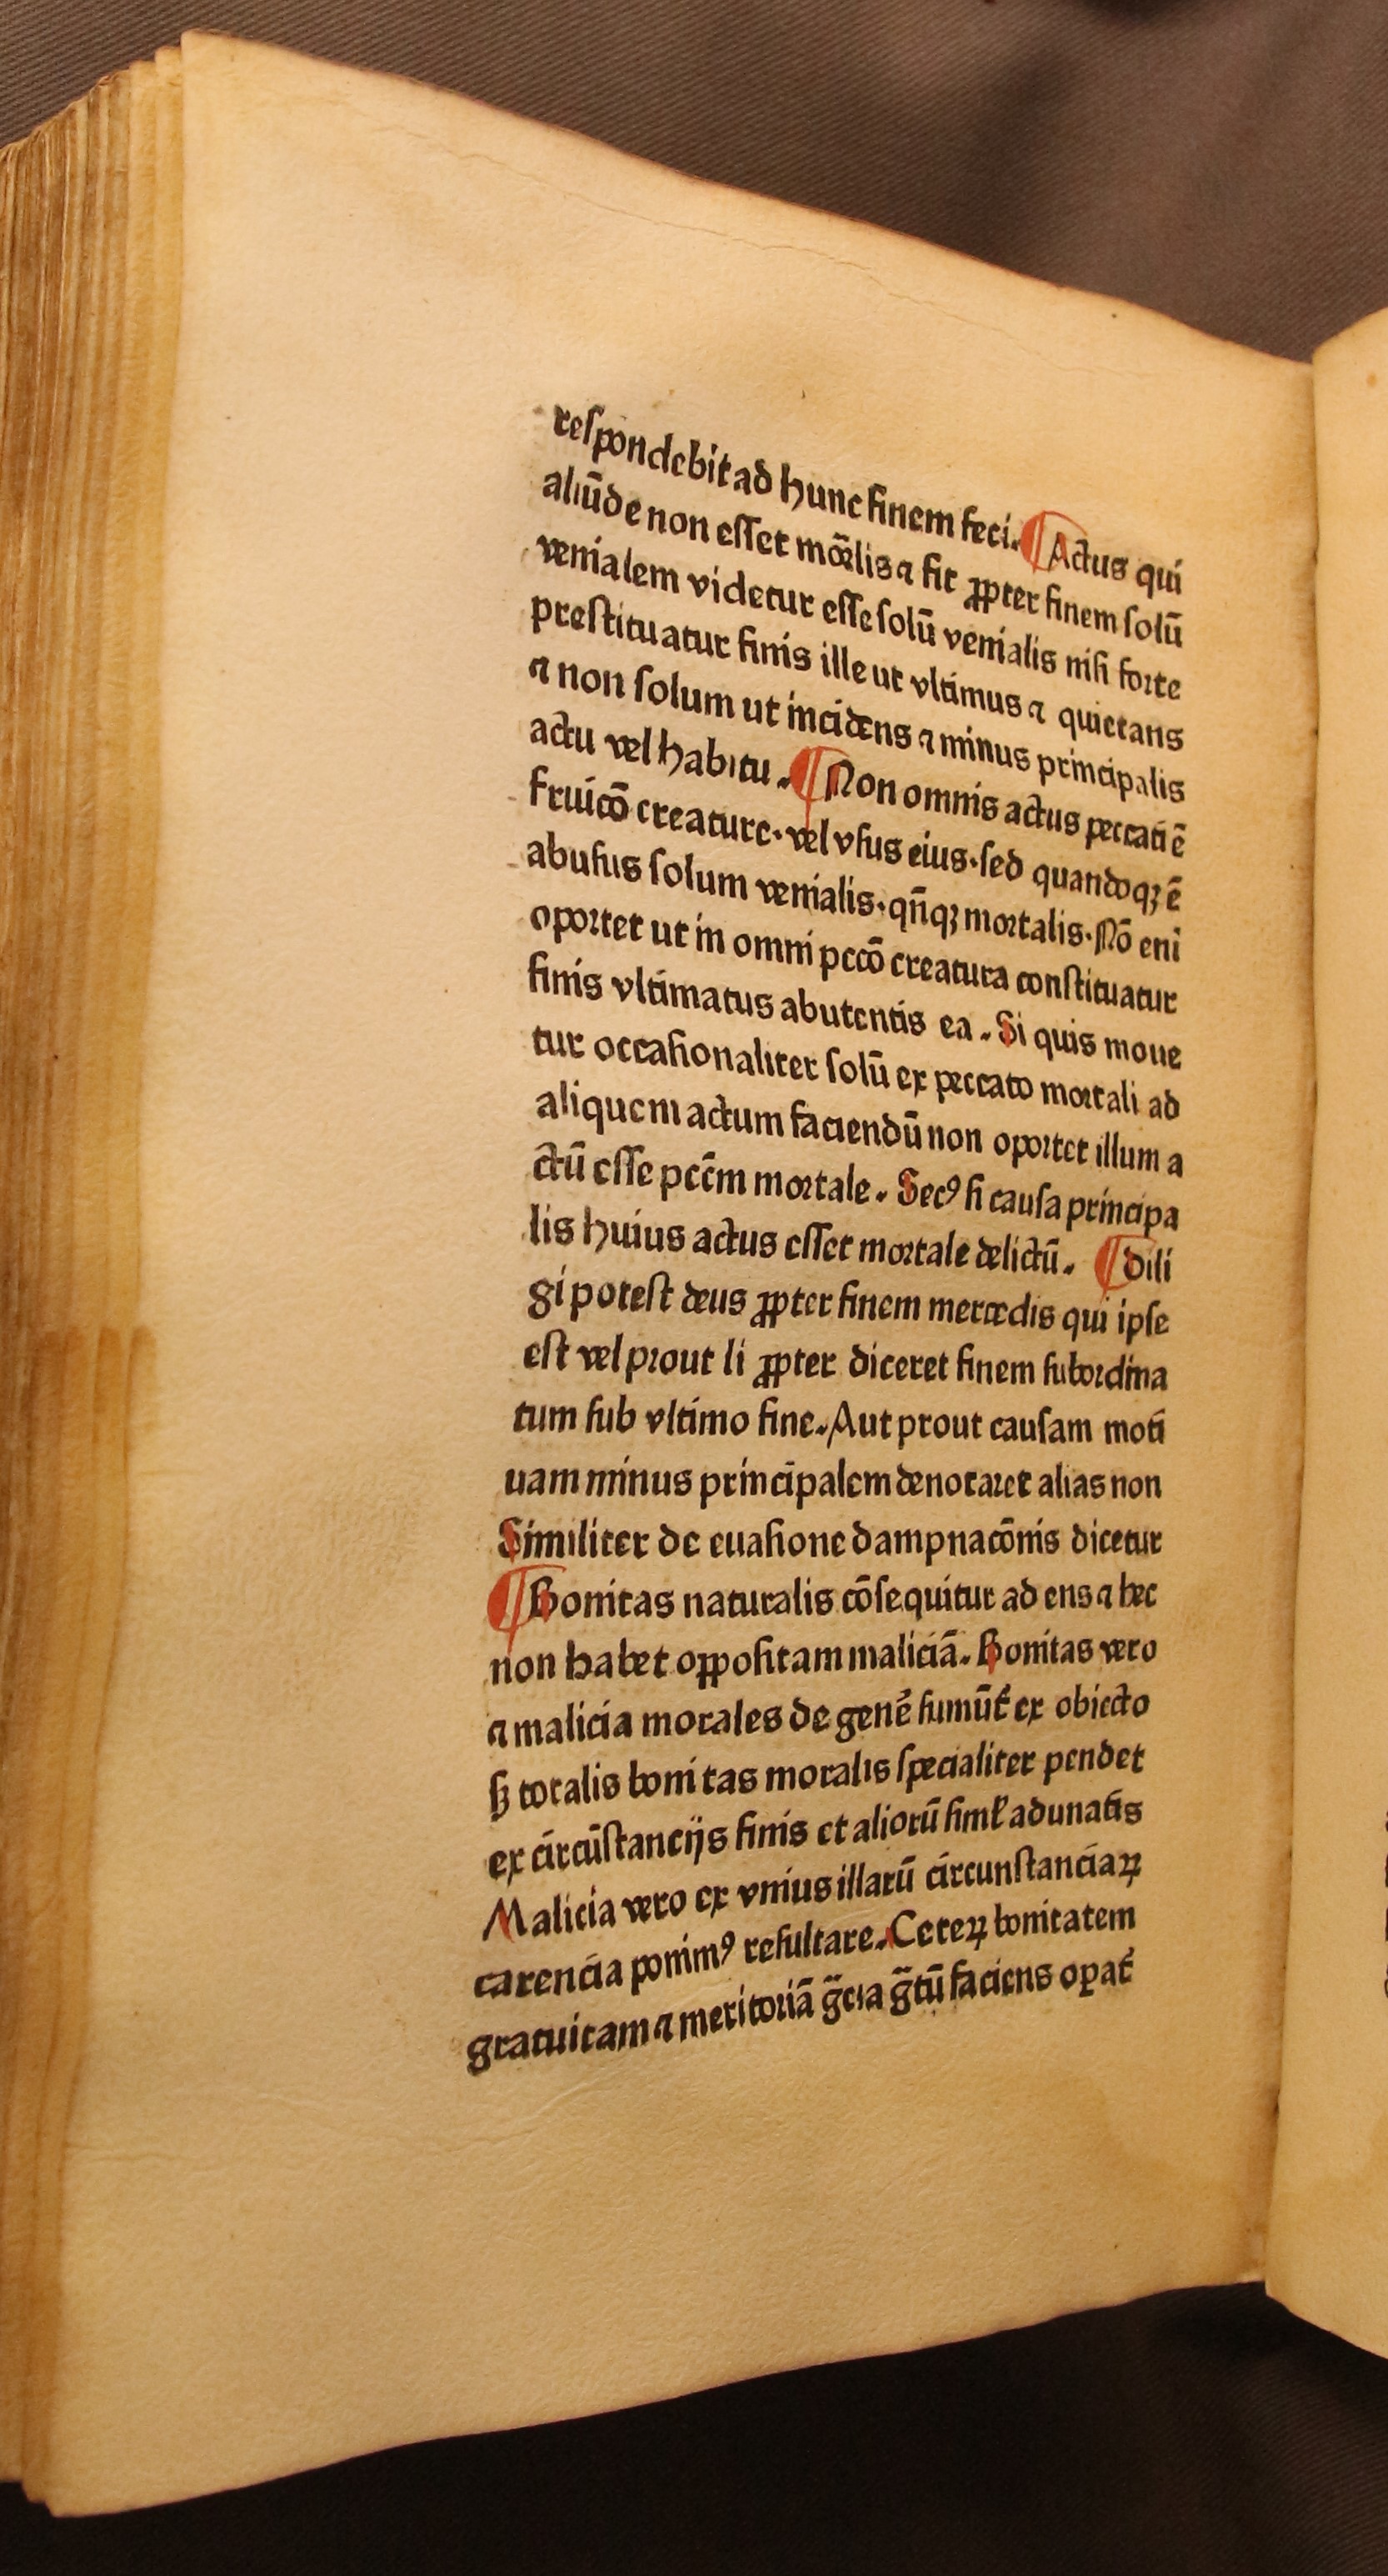 respondebit ad hunc finem feci. ¶ Actus qui
aliūde non esset mōlis ⁊ fit ꝓpter finem solū
venialem videtur esse solū venialis nisi forte
prestituatur finis ille ut vltimus ⁊ quietans
⁊ non solum ut incidens ⁊ minus principalis
actu vel habitu. ¶ Non omnis actus peccati ē
fruicō creature. vel vsus eius. sed quandoqꝫ ē
abusus solum venialis. qn̄qꝫ mortalis. Nō eni
oportet ut in omni pccō creatura constituatur
finis vltimatus abutentis ea. Si quis moue
tur occasionaliter solū ex peccato mortali ad
aliquem actum faciendū non oportet illum a
ctū esse pccm̄ mortale. Secꝰ si causa principa
lis huius actus esset mortale delictū. ¶ Dili
gi potest deus ꝓpter finem mercedis qui ipse
est vel prout li ꝓpter diceret finem subordina
tum sub vltimo fine. Aut prout causam moti
uam minus principalem denotaret alias non
Similiter de euasione dampnacōnis dicetur
¶ Bonitas naturalis cōsequitur ad ens ⁊ hec
non habet oppositam maliciā. Bonitas vero
⁊ malicia morales de gene᷑ sumūt᷑ ex obiecto
sꝫ totalis bonitas moralis specialiter pendet
ex circūstancijs finis et aliorū simł adunatis
Malicia vero ex vnius illarū circunstanciaꝝ
carencia ponimꝰ resultare. Ceteꝝ bonitatem
gratuitam ⁊ meritoriā gr̄cia gr̄tū faciens oꝑat᷑